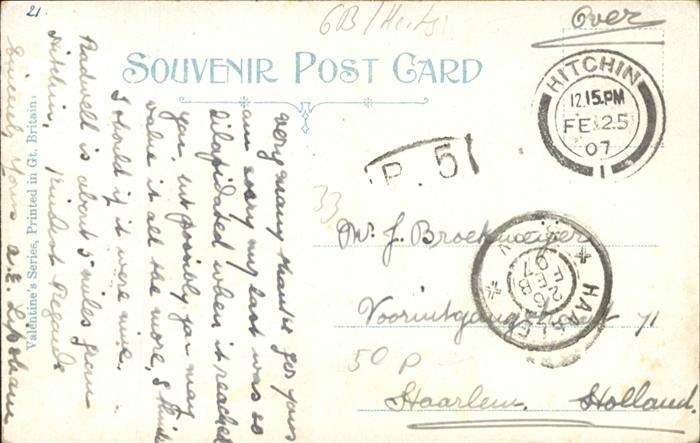 21.
GB/Herts
Over
SOUVENIR POST CARD
HITCHIN
12.15.PM
FE 25
07
1
P. 5
very many thanks for yours
am sorry my last was so
dilapidated when it reached
you, but possibly you may
value it all the more, I think
I should if it were mine.
Radwell is about 5 miles from
Hitchin, Kindest Regards
Sincerely Yours A.E.
Valentine's Series, Printed in Gt. Britain.
33
Mr. J. Brockmeijer
71
50 P
Haarlem. Holland
HAARLEM
26 FEB
07